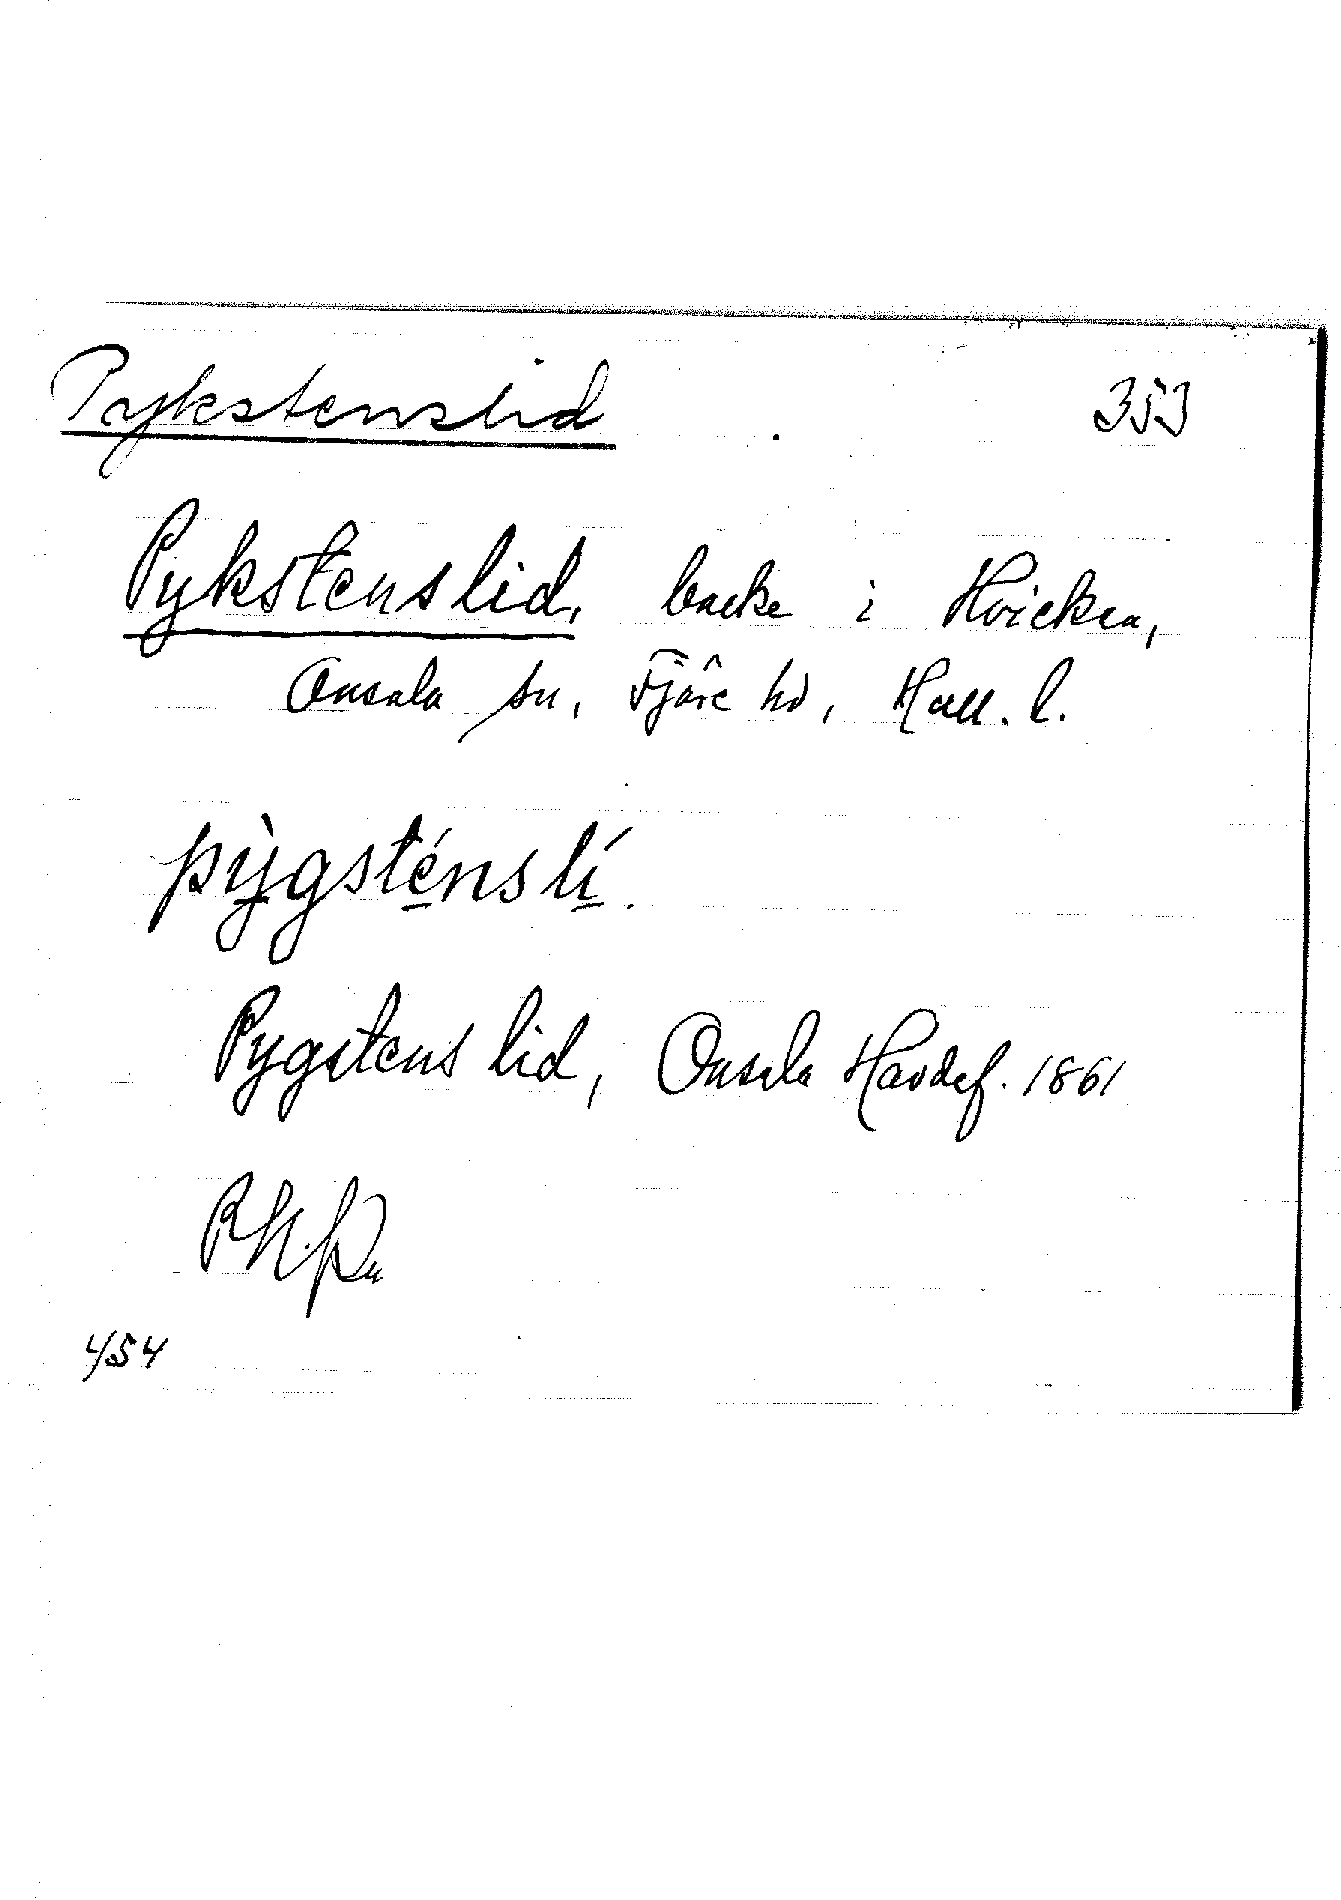 Pykstenslid 353
Pykstenslid, backe i Hvicken,
Onsala sn, Fjäre hd, Hall. l.
pỳgsténslí.
Pygstens lid, Onsala Havdef. 1861
454